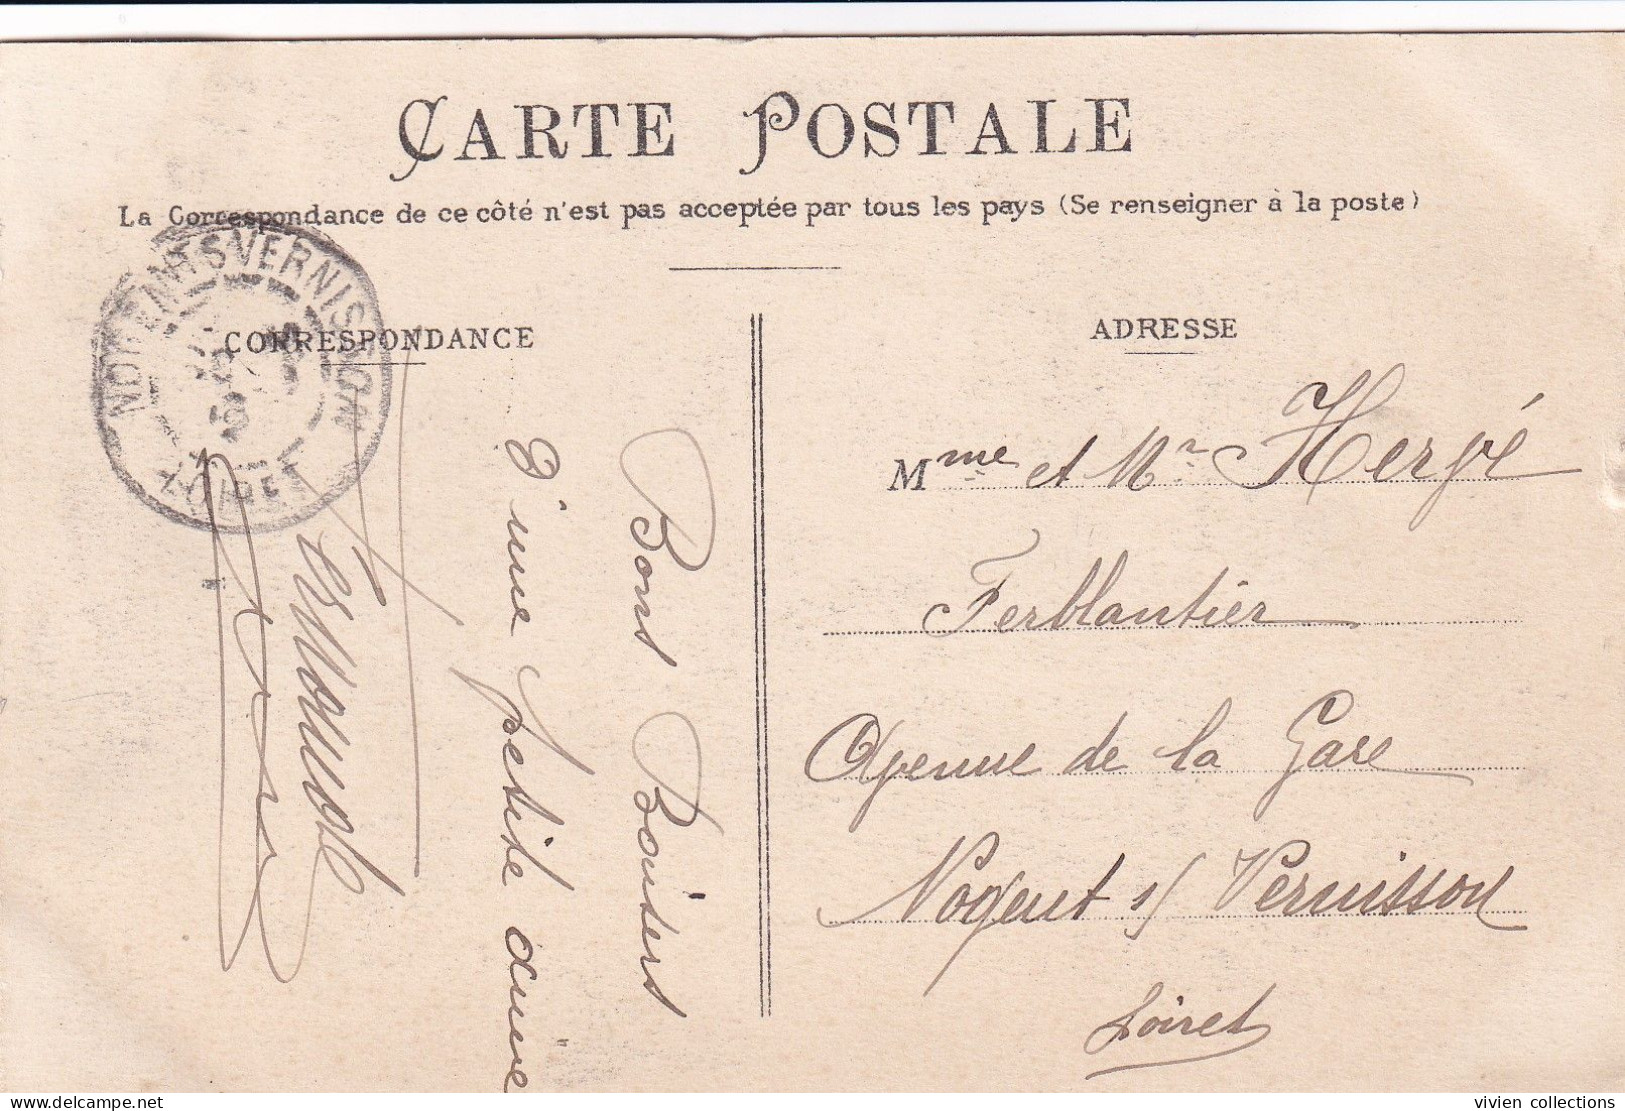 CARTE POSTALE
La Correspondance de ce côté n'est pas acceptée par tous les pays (Se renseigner à la poste)
NOGENT S VERNISSON
LOIRET
CORRESPONDANCE
Bons Baisers
d'une petite amie
ADRESSE
Mme et Mr Hergé
Ferblantier
Avenue de la Gare
Nogent s/ Vernisson
Loiret
delcampe.net
vivien collections